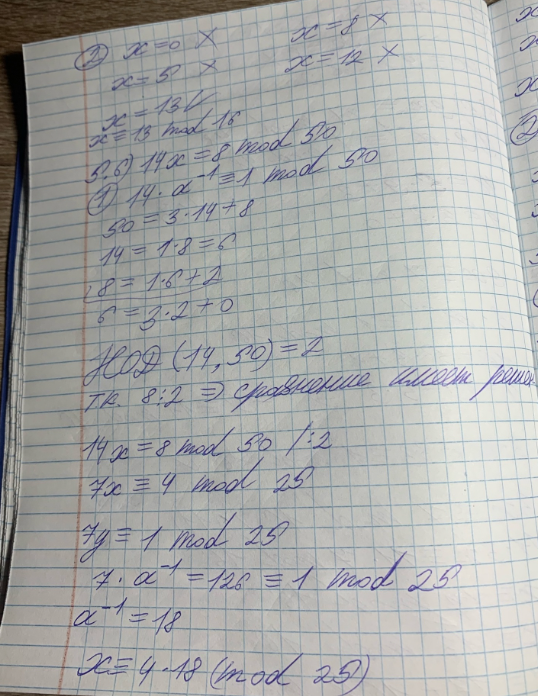 ② x = 0 ✗
x = 8 ✗
x = 5 ✗
x = 12 ✗
x = 13 ✓
x ≡ 13 mod 16
5.б) 14x ≡ 8 mod 50
① 14 · a⁻¹ ≡ 1 mod 50
50 = 3·14+8
14 = 1·8 = 6
8 = 1·6+2
6 = 3·2+0
НОД (14, 50) = 2
тк. 8:2 ⇒ сравнение имеет решен
14x ≡ 8 mod 50 /:2
7x ≡ 4 mod 25
7y ≡ 1 mod 25
7 · a⁻¹ = 126 ≡ 1 mod 25
a⁻¹ = 18
x ≡ 4·18 (mod 25)